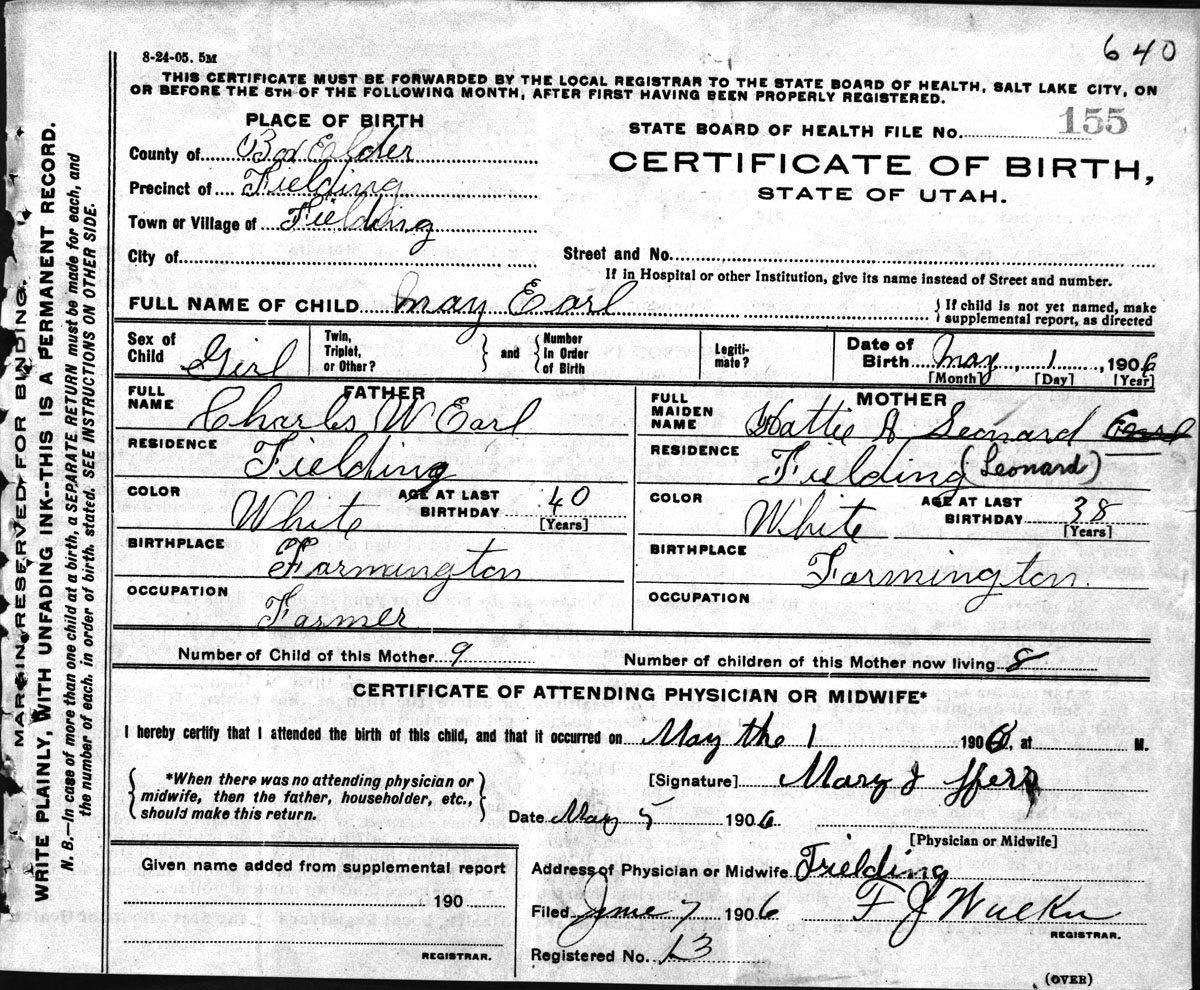 640
8-24-05. 5M
THIS CERTIFICATE MUST BE FORWARDED BY THE LOCAL REGISTRAR TO THE STATE BOARD OF HEALTH, SALT LAKE CITY, ON
OR BEFORE THE 5TH OF THE FOLLOWING MONTH, AFTER FIRST HAVING BEEN PROPERLY REGISTERED.
MARGIN RESERVED FOR BINDING.
WRITE PLAINLY, WITH UNFADING INK--THIS IS A PERMANENT RECORD.
N. B.—In case of more than one child at a birth, a SEPARATE RETURN must be made for each, and
the number of each, in order of birth stated. SEE INSTRUCTIONS ON OTHER SIDE.
PLACE OF BIRTH
County of Box Elder
Precinct of Fielding
Town or Village of Fielding
City of
STATE BOARD OF HEALTH FILE No. 155
CERTIFICATE OF BIRTH,
STATE OF UTAH.
Street and No.
If in Hospital or other Institution, give its name instead of Street and number.
FULL NAME OF CHILD May Earl
If child is not yet named, make
supplemental report, as directed
Sex of Child Girl
Twin, Triplet, or Other?
and
Number in Order of Birth
Legiti-mate?
Date of Birth May 1, 1906
[Month] [Day] [Year]
FATHER
FULL NAME Charles W Earl
RESIDENCE Fielding
COLOR White
AGE AT LAST BIRTHDAY 40
[Years]
BIRTHPLACE Farmington
OCCUPATION Farmer
MOTHER
FULL MAIDEN NAME Hattie A Leonard Earl
RESIDENCE Fielding (Leonard)
COLOR White
AGE AT LAST BIRTHDAY 38
[Years]
BIRTHPLACE Farmington.
OCCUPATION
Number of Child of this Mother 9
Number of children of this Mother now living 8
CERTIFICATE OF ATTENDING PHYSICIAN OR MIDWIFE*
I hereby certify that I attended the birth of this child, and that it occurred on May the 1 1906, at M.
*When there was no attending physician or
midwife, then the father, householder, etc.,
should make this return.
[Signature] Mary J
Date May 5 1906
[Physician or Midwife]
Address of Physician or Midwife Fielding
Filed June 7, 1906 F J
REGISTRAR.
Registered No. 13
Given name added from supplemental report
190
REGISTRAR.
(OVER)